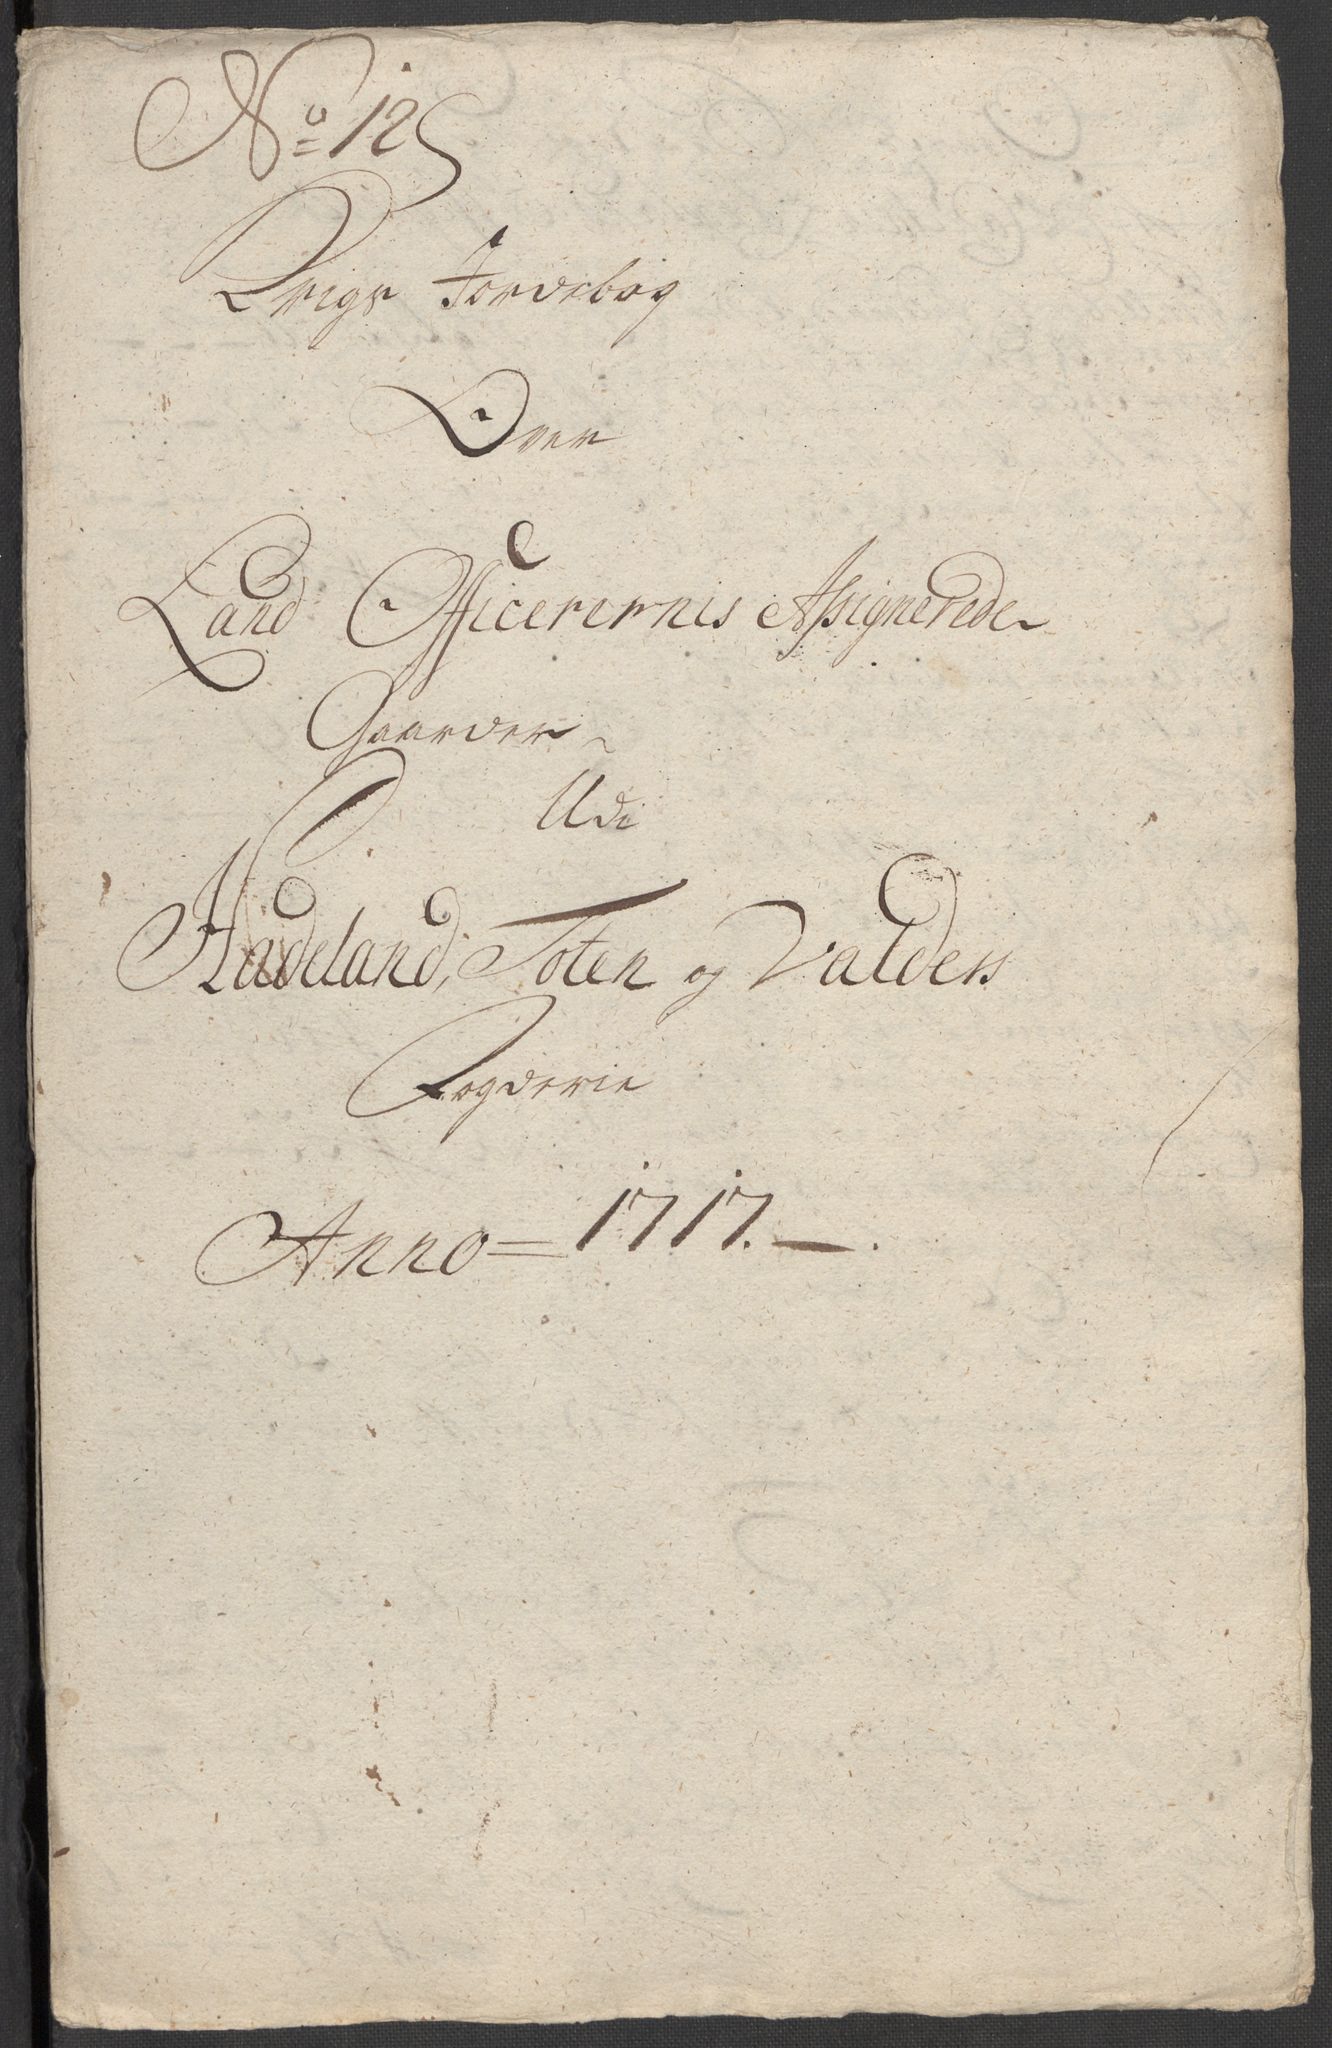 No 12
Krigs Jordebog
Over
Land Officerernis Assignerede
Gaarder
Udi
Hadeland, Toten og Valders
Fogderie
Anno = 1717.